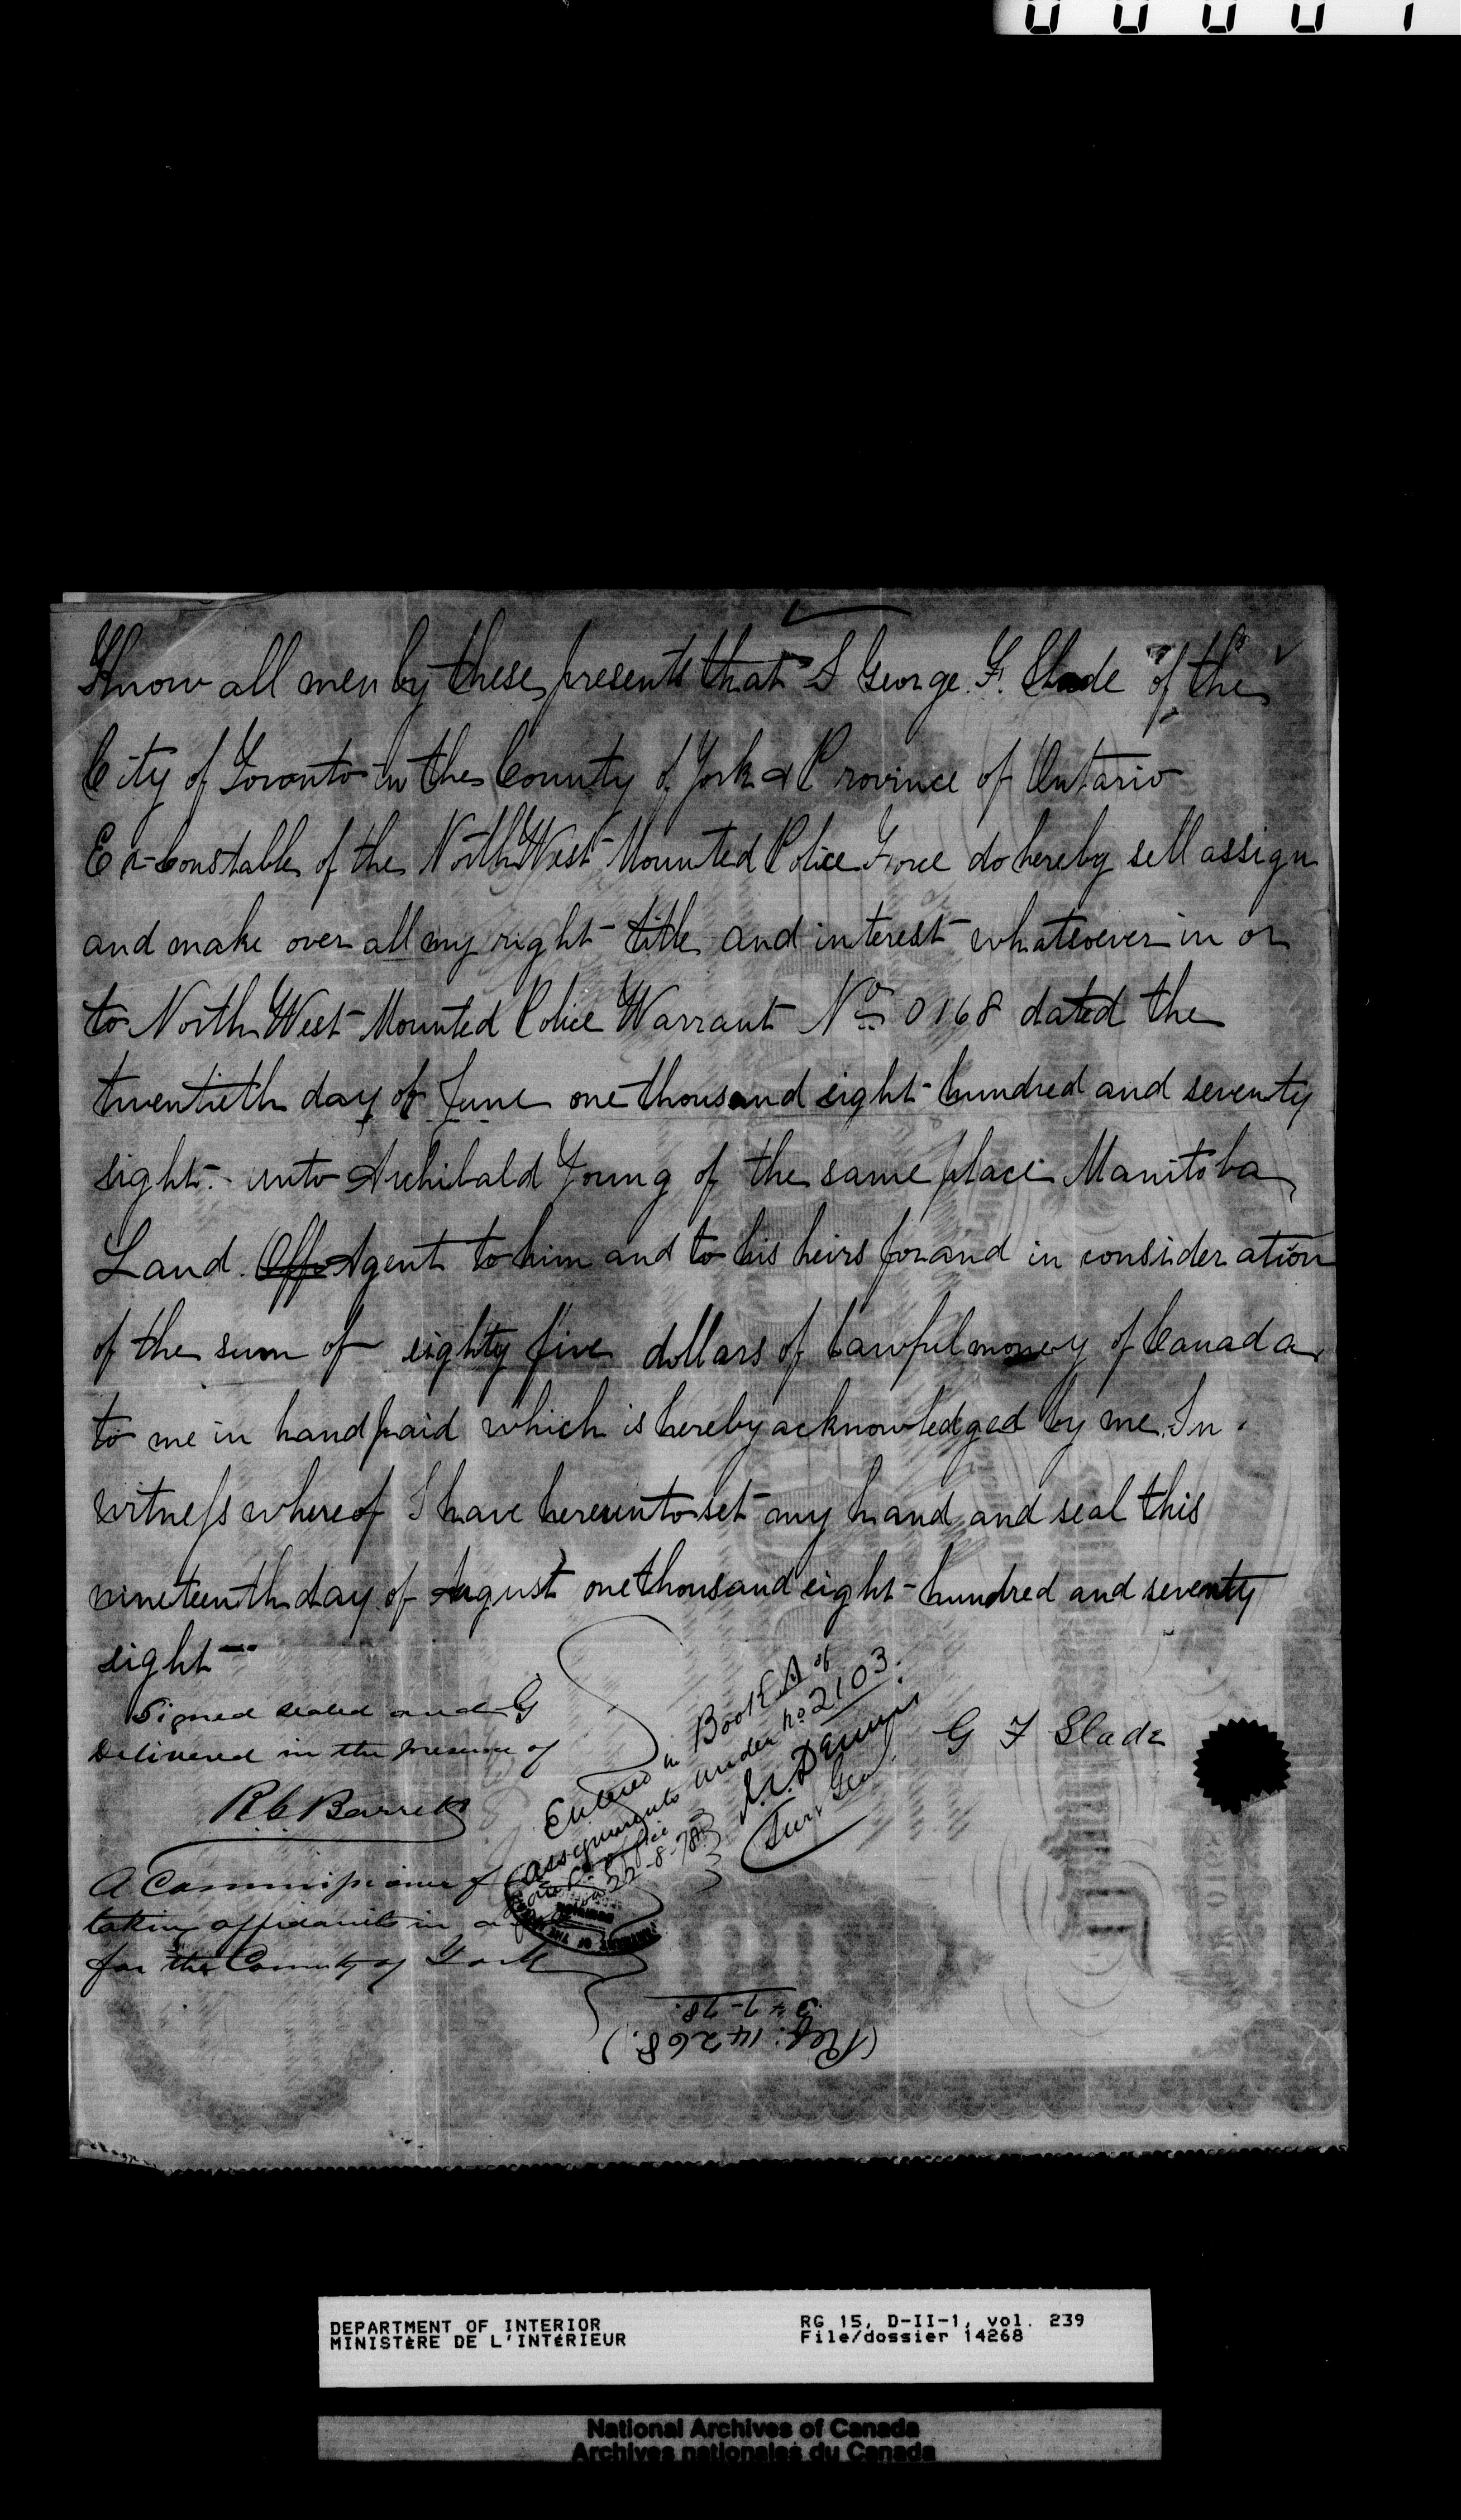 00001
Know all men by these presents that I George. F. Slade of the
City of Toronto in the County of York & Province of Ontario
Ex-Constable of the North West Mounted Police Force do hereby sell assign
and make over all my right title and interest whatsoever in or
to North West Mounted Police Warrant No 0168 dated the
twentieth day of June one thousand eight hundred and seventy
eight - unto Archibald Young of the same place Manitoba
Land Offe Agent to him and to his heirs for and in consideration
of the sum of eighty five dollars of lawful money of Canada
to me in hand paid which is hereby acknowledged by me. In
witness whereof I have hereunto set my hand and seal this
nineteenth day of August one thousand eight hundred and seventy
eight -
Signed sealed and
Delivered in the presence of
R. C. Barrett
A Commissioner f
taking affidavits in a
for the County of York
G F Slade
Entered in Book A of
Assignments under No 2103.
Office
22-8-78
J. S. Dennis
Surv Genl
(Ref: 14268.)
3-7-78.
DEPARTMENT OF INTERIOR
MINISTÈRE DE L'INTÉRIEUR
RG 15, D-II-1, vol. 239
File/dossier 14268
National Archives of Canada
Archives nationales du Canada